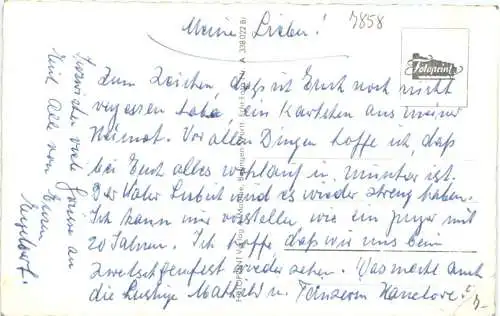 Meine Lieben!
7858
Fotoprint
Zum Zeichen, daß ich Euch noch nicht
vergessen habe, ein Kärtchen aus meiner
Heimat. Vor allen Dingen hoffe ich, daß
bei Euch alles wohlauf u. munter ist.
Der Vater Lubert wird es wieder streng haben.
Ich kann mir vorstellen, wie ein junger mit
20 Jahren. Ich hoffe daß wir uns beim
Zwetschgenfest wieder sehen. Was macht auch
die lustige Mathild u. Tänzerin Hanelore?
Inzwischen viele Grüsse an
Euch Alle von Eurem
Engelbert.
A 338 022 Bl